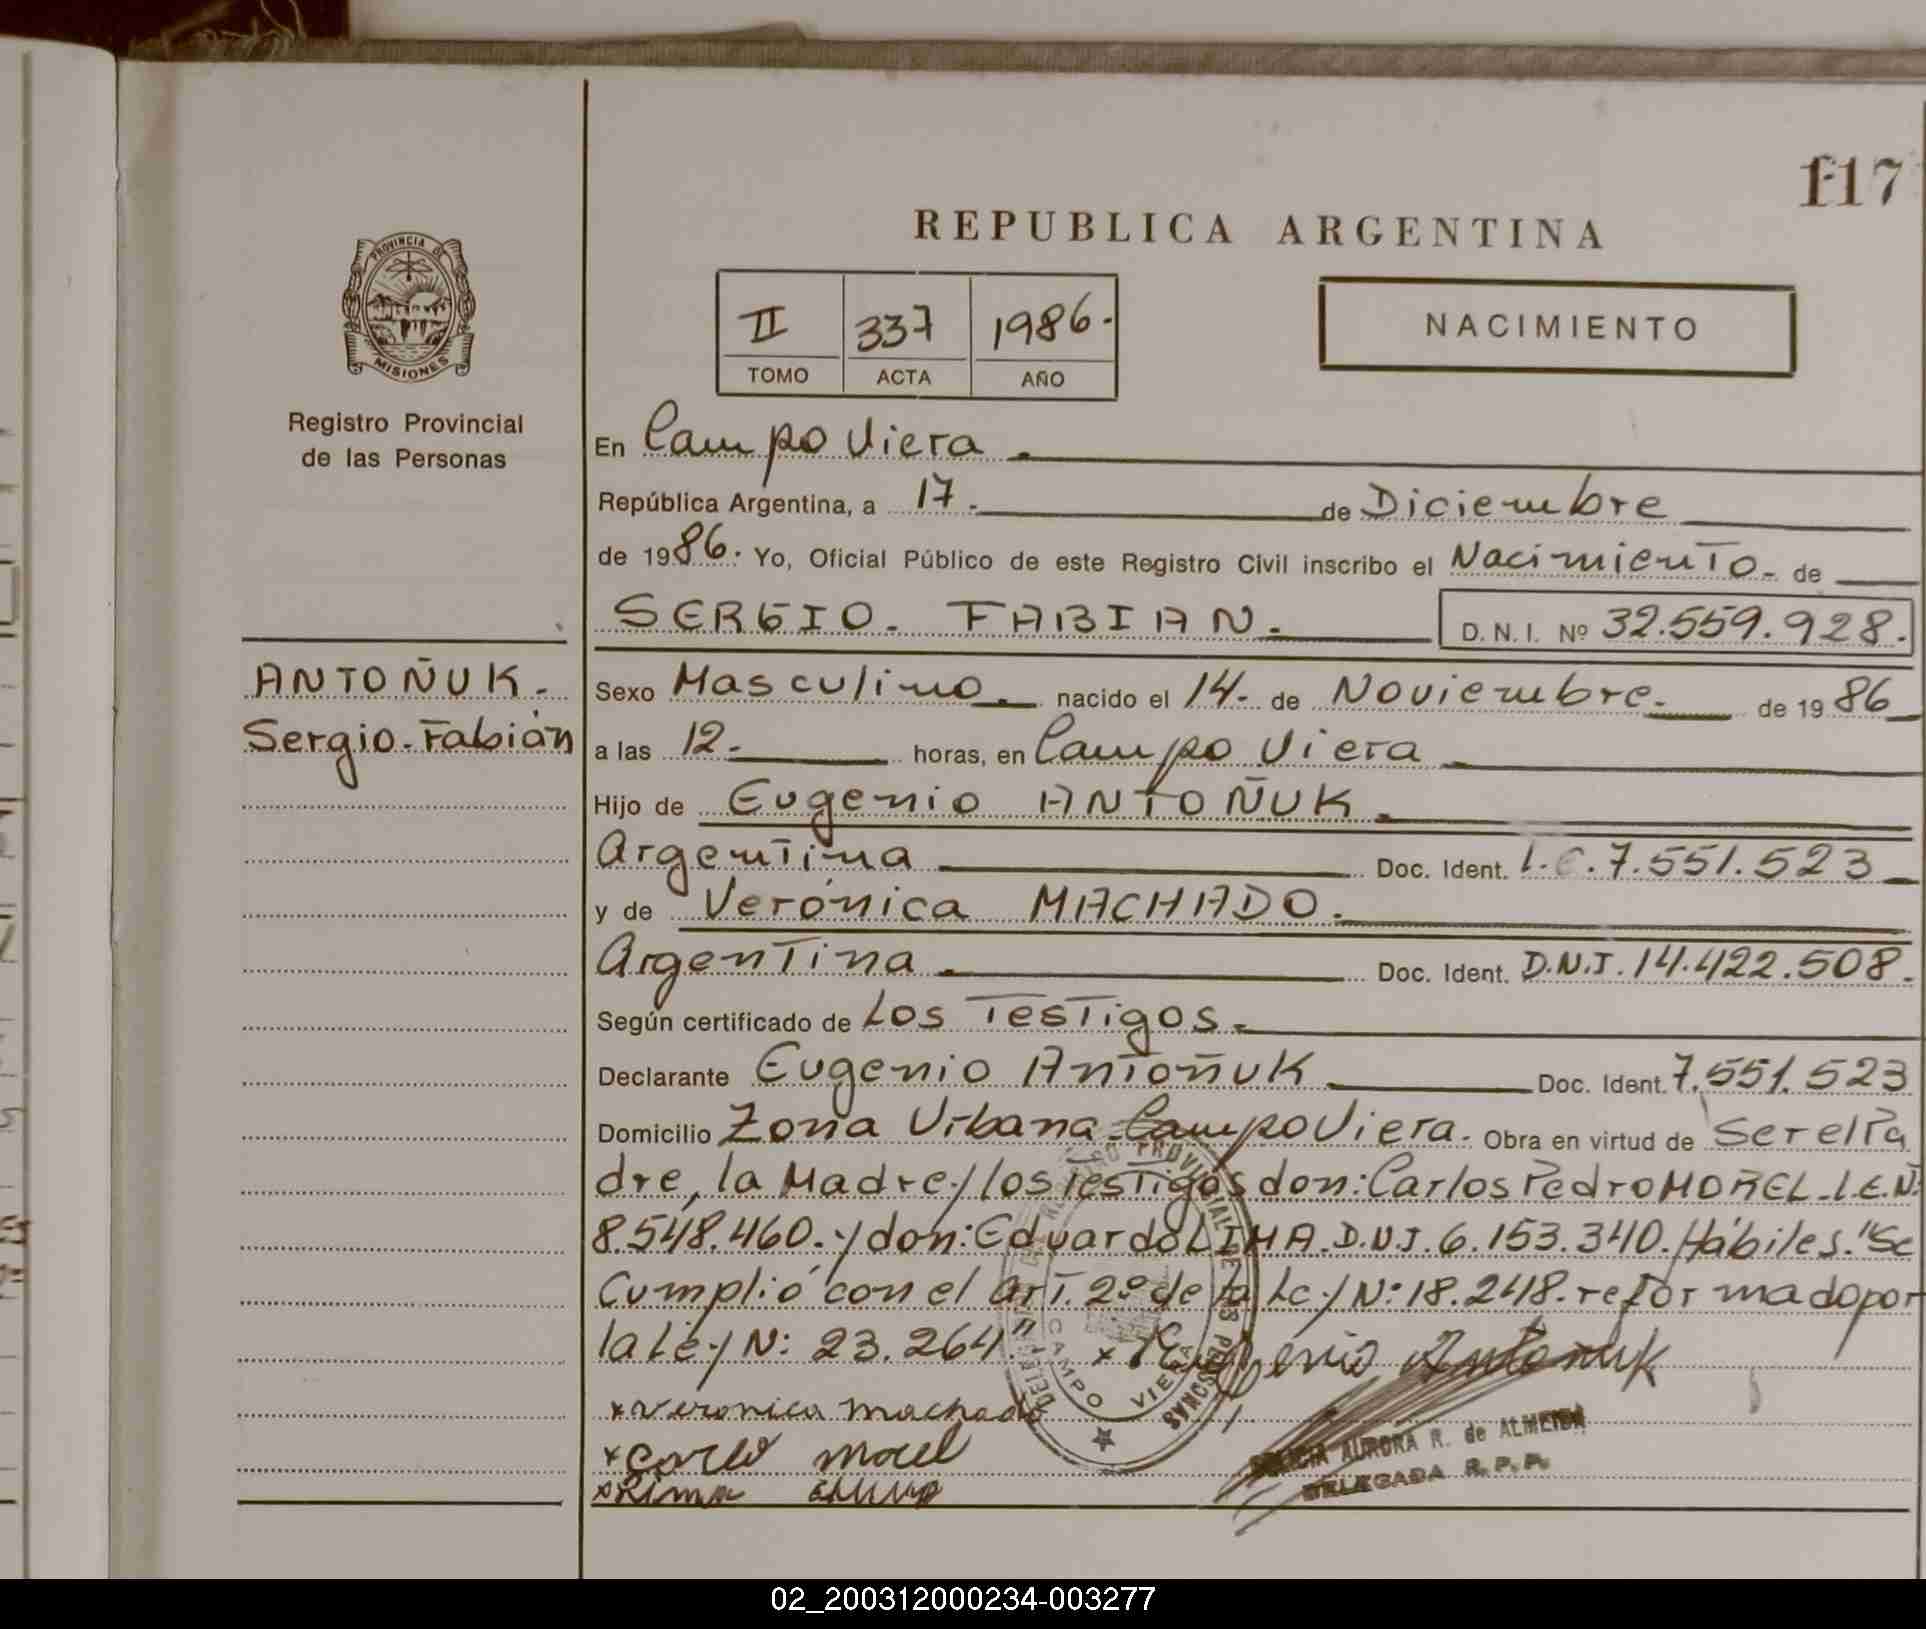 117
REPUBLICA ARGENTINA
PROVINCIA DE
MISIONES
II 337 1986.
TOMO ACTA AÑO
NACIMIENTO
Registro Provincial
de las Personas
ANTOÑUK.
Sergio. Fabián
En Campo Viera.
República Argentina, a 17. de Diciembre
de 1986. Yo, Oficial Público de este Registro Civil inscribo el Nacimiento. de
SERGIO. FABIAN. D. N. I. Nº 32.559.928.
Sexo Masculino. nacido el 14. de Noviembre. de 1986
a las 12. horas, en Campo Viera
Hijo de Eugenio ANTOÑUK.
Argentina Doc. Ident. L.E. 7.551.523
y de Verónica MACHADO.
Argentina. Doc. Ident. D.N.I. 14.422.508.
Según certificado de Los Testigos.
Declarante Eugenio Antoñuk Doc. Ident. 7.551.523
Domicilio Zona Urbana Campo Viera. Obra en virtud de Ser el Pa
dre, la Madre y los Testigos don: Carlos Pedro MOREL. L.E. N:
8.548.460. y don: Eduardo LIMA. D.N.I. 6.153.340. Hábiles. "Se
Cumplió con el Art. 2º de la Ley N: 18.248. reformado por
la Ley N: 23.264"
x Eugenio Antonuk
x veronica machado
x Carlo morel
x Lima
REGISTRO PROVINCIAL DE LAS PERSONAS
CAMPO VIERA
AURORA R. de ALMEIDA
DELEGADA R. P. P.
02_200312000234-003277